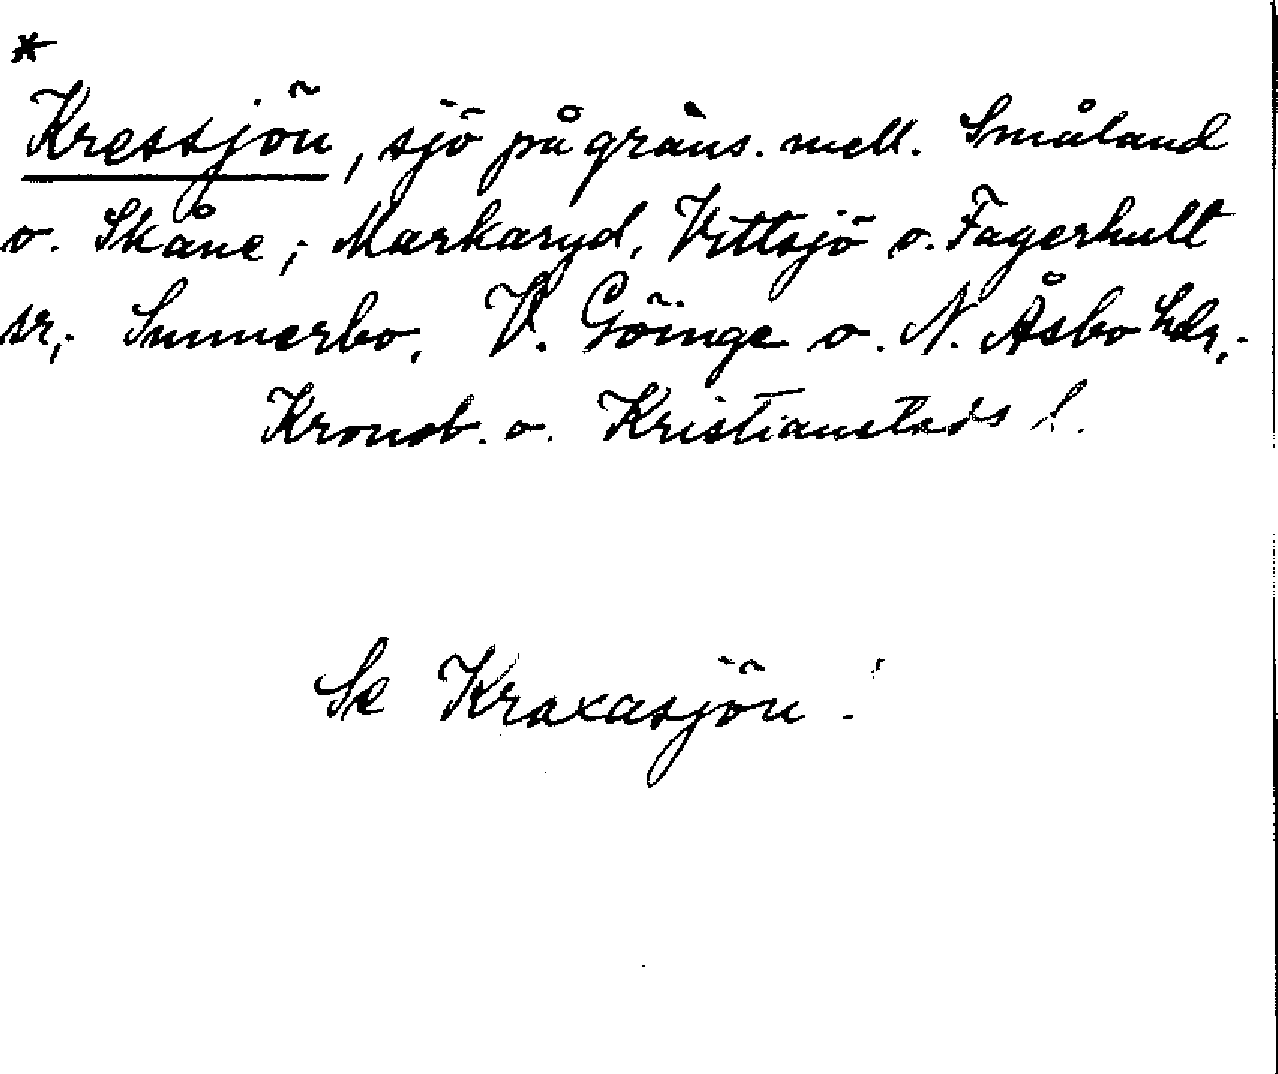 *
Kressjön, sjö på gräns. mell. Småland
o. Skåne; Markaryd, Vittsjö o. Fagerhult
sr,; Sunnerbo, V. Göinge o. N. Åsbo hdr,-
Kronob. o. Kristianstads l.
Se Kraxasjön!